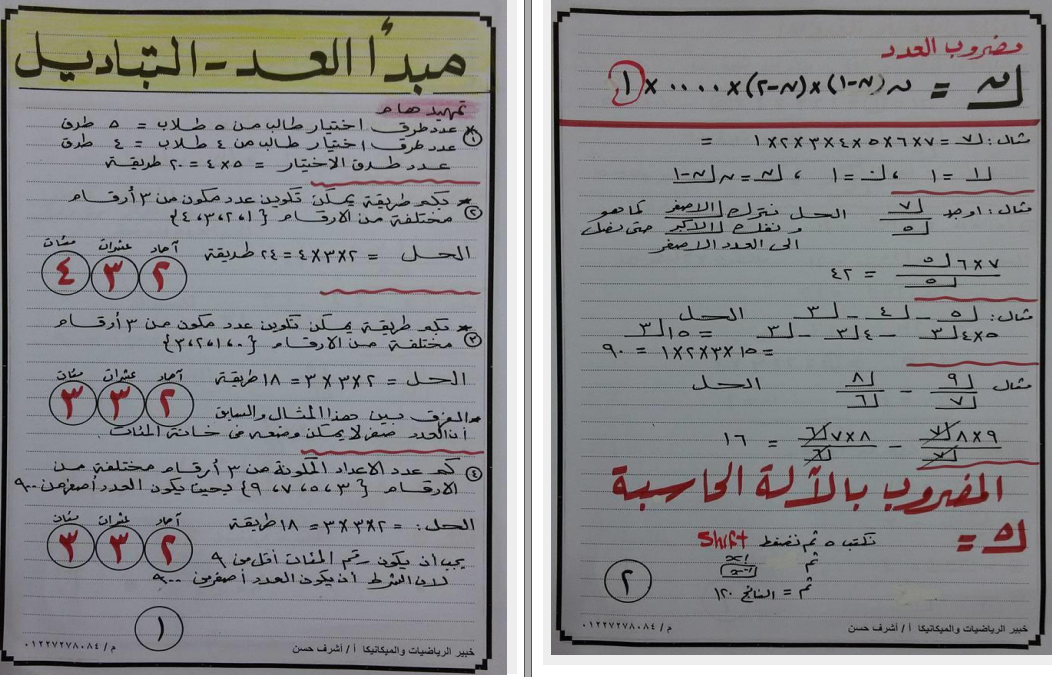 مبدأ العد - التباديل
تمهيد هام
* ① عدد طرق اختيار طالب من ٥ طلاب = ٥ طرق
عدد طرق اختيار طالب من ٤ طلاب = ٤ طرق
عدد طرق الاختيار = ٥ × ٤ = ٢٠ طريقة
* ② بكم طريقة يمكن تكوين عدد مكون من ٣ أرقام
مختلفة من الارقام { ١، ٢، ٣، ٤ }
الحل = ٢ × ٣ × ٤ = ٢٤ طريقة
آحاد عشرات مئات
٢ ٣ ٤
* ③ بكم طريقة يمكن تكوين عدد مكون من ٣ أرقام
مختلفة من الارقام { ٠، ١، ٢، ٣ }
الحل = ٢ × ٣ × ٣ = ١٨ طريقة
آحاد عشرات مئات
٢ ٣ ٣
* الفرق بين هذا المثال والسابق
أن العدد صفر لا يمكن وضعه فى خانة المئات
④ كم عدد الاعداد المكونة من ٣ أرقام مختلفة من
الارقام { ٣، ٥، ٧، ٩ } بحيث يكون العدد أصغر من ٩٠٠
الحل : = ٢ × ٣ × ٣ = ١٨ طريقة
آحاد عشرات مئات
٢ ٣ ٣
يجب ان يكون رقم المئات أقل من ٩
لان الشرط أن يكون العدد أصغر من ٩٠٠
١
خبير الرياضيات والميكانيكا أ / أشرف حسن
م / ٠١٢٢٧٢٧٨٠٨٤
مضروب العدد
⌊ن = ن (ن-١) × (ن-٢) × .... × ١
مثال : ⌊٧ = ٧ × ٦ × ٥ × ٤ × ٣ × ٢ × ١ =
⌊١ = ١ ، ⌊٠ = ١ ، ⌊ن = ن ⌊ن-١
مثال : اوجد ⌊٧ / ⌊٥ الحل نترك الاصغر كما هو
و نفك الاكبر حتى نصل
الى العدد الاصغر
٧ × ٦ ⌊٥ / ⌊٥ = ٤٢
مثال : ⌊٥ - ⌊٤ - ⌊٣ الحل
٥ × ٤ ⌊٣ - ٤ ⌊٣ - ⌊٣ = ١٥ ⌊٣
= ١٥ × ٣ × ٢ × ١ = ٩٠
مثال ⌊٩ / ⌊٧ - ⌊٨ / ⌊٦ الحل
٩ × ٨ ⌊٧ / ⌊٧ - ٨ × ٧ ⌊٦ / ⌊٦ = ١٦
المضروب بالآلة الحاسبة
⌊٥ =
نكتب ٥ ثم نضغط Shift
ثم x! x⁻¹
ثم = الناتج ١٢٠
٢
خبير الرياضيات والميكانيكا أ / أشرف حسن
م / ٠١٢٢٧٢٧٨٠٨٤